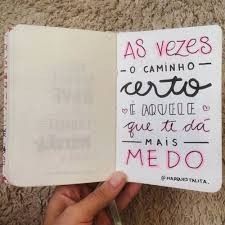 AS VEZES
O CAMINHO
certo
É AQUELE
que te dá
MAIS
MEDO